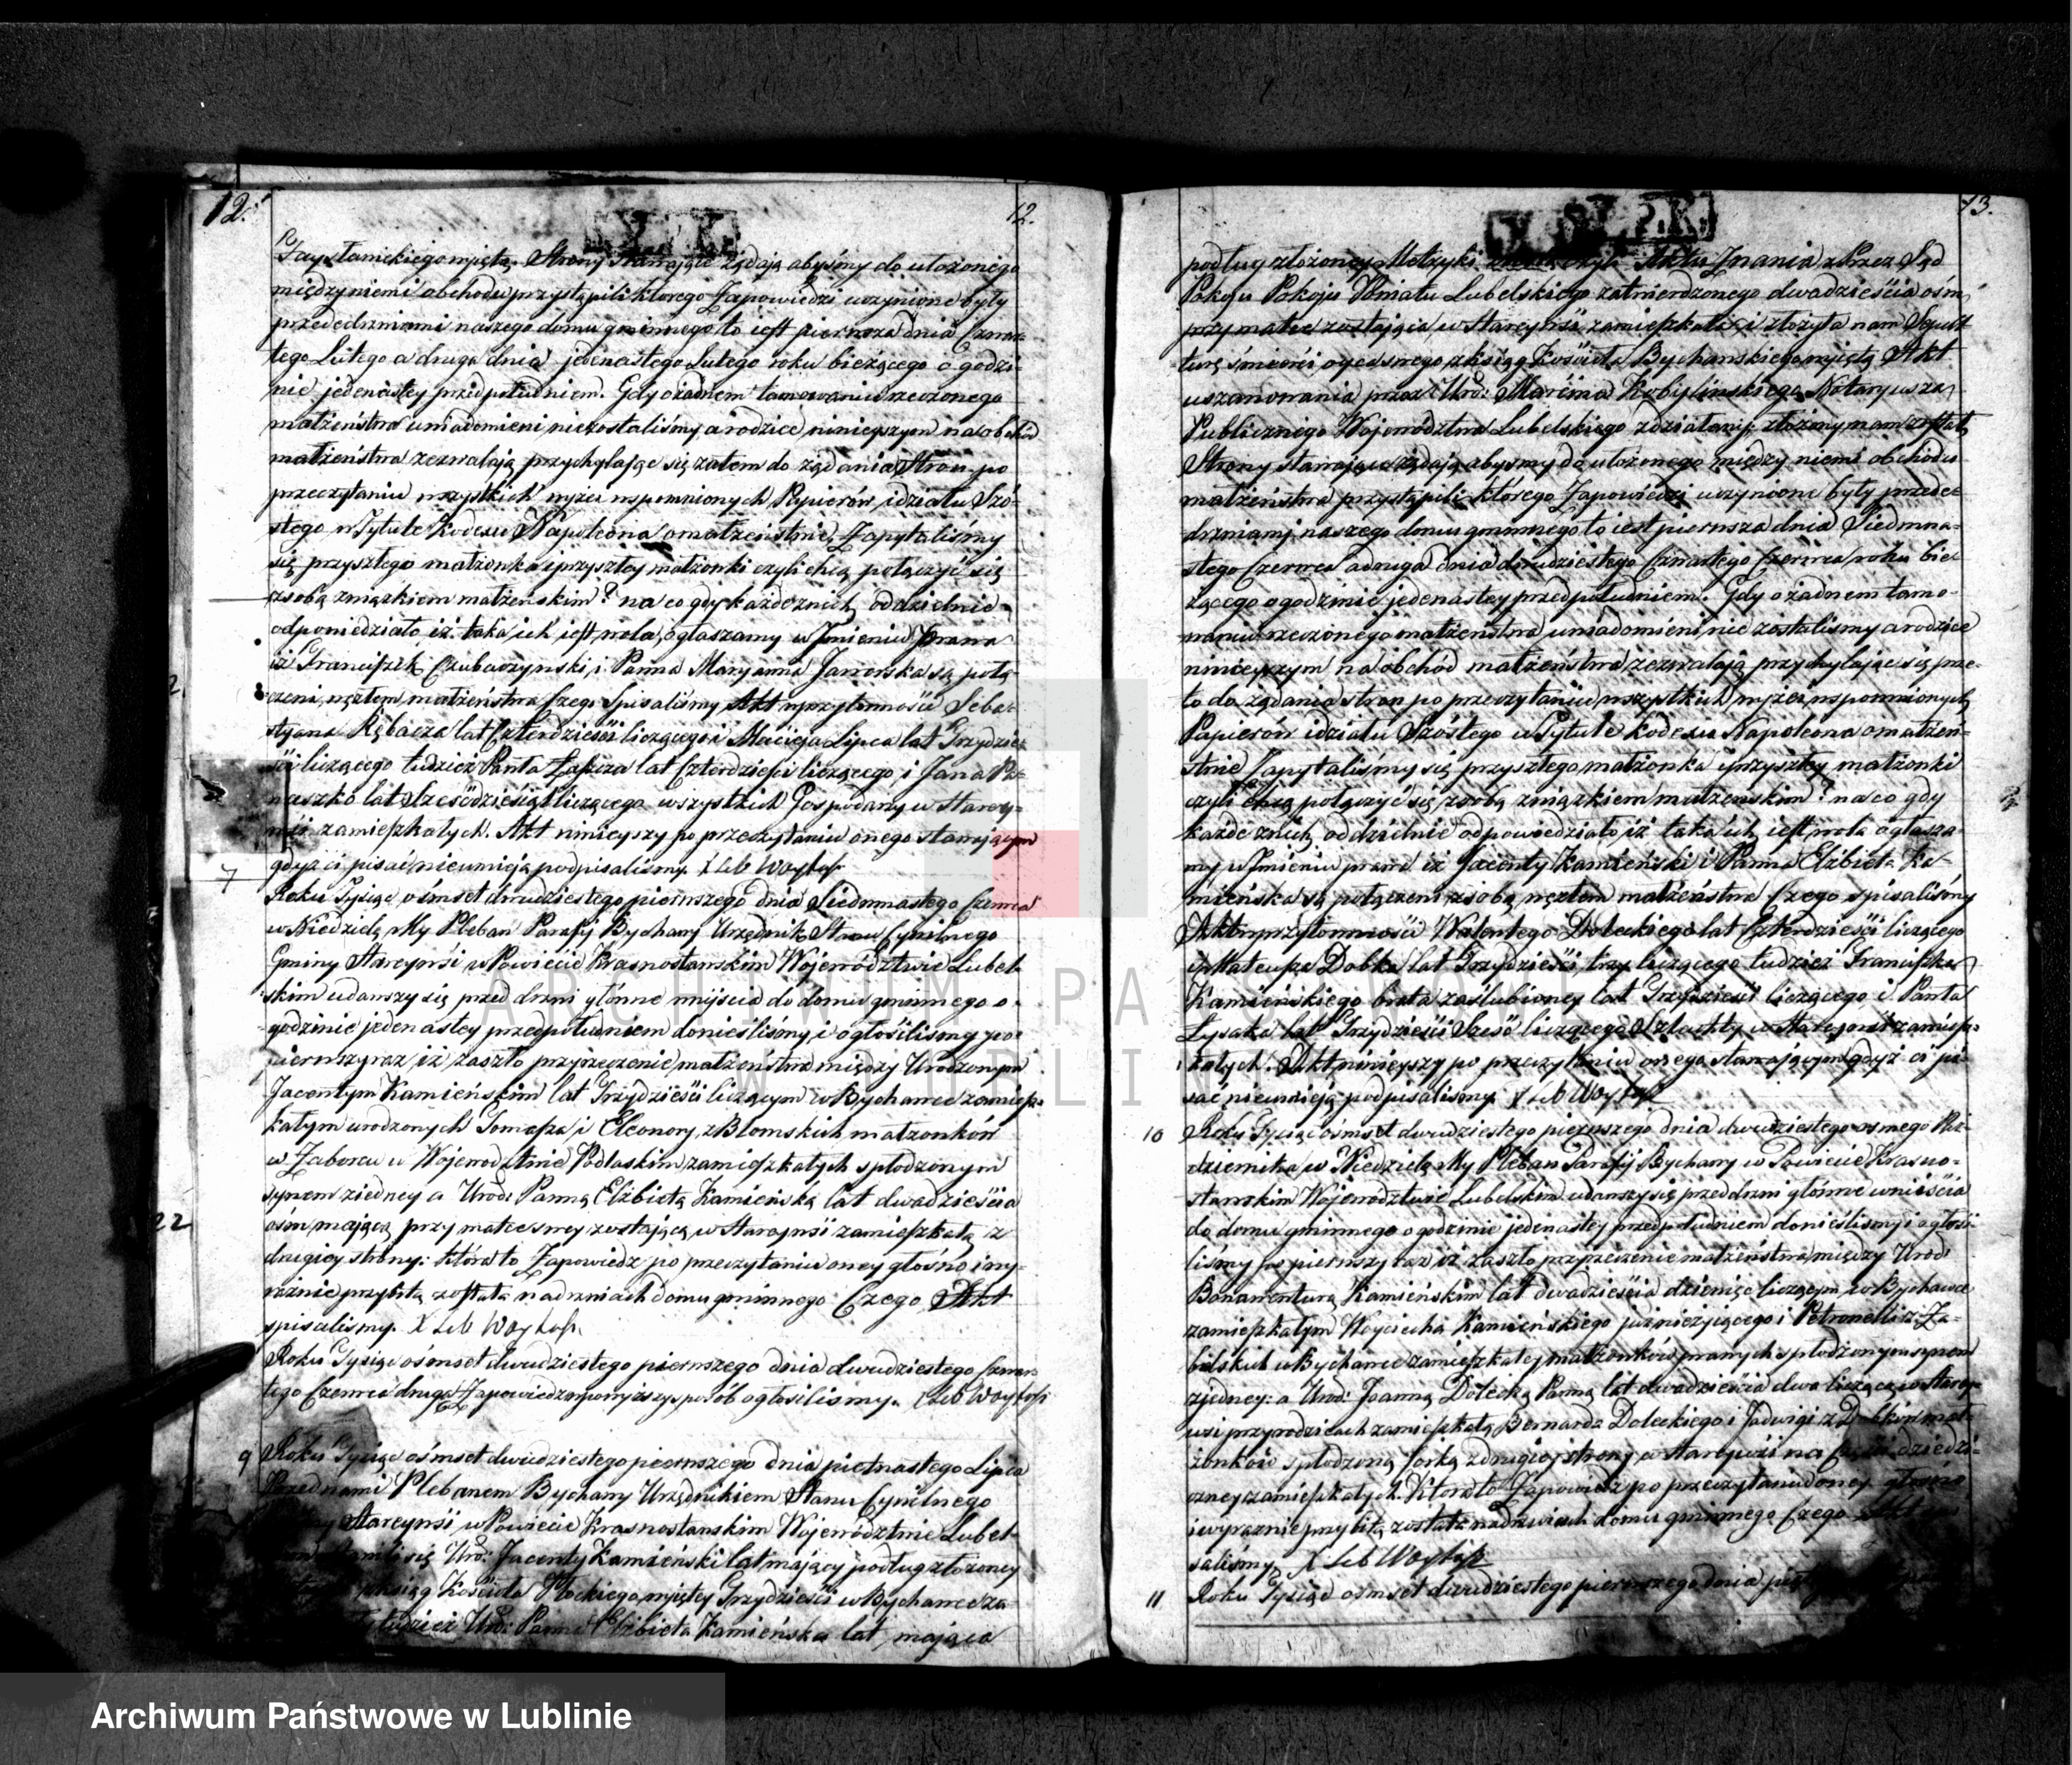 12.
12.
Strony stawające żądają abyśmy do ułożonego
między niemi obchodu przystąpili którego Zapowiedzi uczynione były
przededrzwiami naszego domu gminnego to iest pierwsza dnia Czwar-
tego Lutego a druga dnia jedenastego Lutego roku bieżącego o godzi-
nie jedenastey przed południem. Gdy o żadnem tamowaniu rzeczonego
małżeństwa uwiadomieni niezostaliśmy a rodzice ninieyszym na obchód
małżeństwa zezwalają przychylając się zatem do żądania Stron po
przeczytaniu wszystkich wyżey wspomnionych Papierów i działu Szó-
stego w Tytule Kodexu Napoleona o małżeństwie, Zapytaliśmy
się przyszłego małżonka i przyszłey małżonki czyli chcą połączyć się
z sobą związkiem małżeńskim? na co gdy każde z nich oddzielnie
odpowiedziało iż taka ich iest wola, ogłaszamy w Jmieniu Prawa
iż Franciszek Czubaczynski, i Panna Maryanna Jaworska są połą-
czeni węzłem małżeństwa Czego Spisaliśmy Akt w przytomności Seba-
styana Rębacza lat Czterdzieści liczącego i Macieja Lipca lat Trzydzie-
ści liczącego tudzież Pawła lat Czterdzieści liczącego, i Jana Pa-
naszko lat Sześćdziesiąt liczącego wszystkich Gospodarzy w Starey-
wsi zamieszkałych. Akt ninieyszy po przeczytaniu onego stawającym
gdyż ci pisać nieumieją podpisaliśmy. X Leb Woytoś
7
Roku Tysiąc ośmset dwudziestego pierwszego dnia Siedmnastego Czerwca
w Niedzielę, My Pleban Parafij Bychawy Urzędnik Stanu Cywilnego
Gminy Stareywsi w Powiecie Krasnostawskim Województwie Lubel-
skim udawszy się przed drzwi główne wniyscia do domu gminnego o
godzinie jedenastey przed południem donieśliśmy i ogłosiliśmy po
pierwszy raz iż zaszło przyrzeczenie małżeństwa między Urodzonym
Jacentym Kamieńskim lat Trzydzieści liczącym w Bychawce zamiesz-
kałym urodzonych Tomasza i Eleonory z Blomskich małżonków
w Zaborcu w Wojewodztwie Podlaskim zamieszkałych spłodzonym
synem z iedney a Urod: Panną Elżbietą Kamieńską lat dwadzieścia
ośm mającą przy matce swey zostającą w Stareywsi zamieszkałą z
drugiey strony: która to Zapowiedź po przeczytaniu oney głośno i wy-
raźnie przybitą została na drzwiach domu gminnego Czego Akt
spisaliśmy. X Leb Woytoś
Roku Tysiąc ośmset dwudziestego pierwszego dnia dwudziestego Czwar-
tego Czerwca drugą Zapowiedź w powyższy sposób ogłosiliśmy. X Leb Woytoś
9
Roku Tysiąc ośmset dwudziestego pierwszego dnia piętnastego Lipca
Przed nami Plebanem Bychawy Urzędnikiem Stanu Cywilnego
Stareywsi w Powiecie Krasnostawskim Wojewodztwie Lubel-
się Urod: Jacenty Kamieński lat mający podług złożoney
z xiąg Kościoła wyiętey Trzydzieści w Bychawce za-
tudzież Urod: Panna Elżbieta Kamieńska lat mająca
13.
podług złożoney Metryki czyli Aktu Znania przez Sąd
Pokoju Powiatu Lubelskiego zatwierdzonego dwadzieścia ośm,
przy matce zostająca w Stareywsi zamieszkała, i złożyła nam Sepult-
turę śmierci oyca swego z xiąg Kościoła Bychawskiego wyiętą Akt
uszanowania przez Uro: Marcina Kobylińskiego Notaryusza
Publicznego Wojewodztwa Lubelskiego zdziałany złożony nam został,
Strony stawające żądają abyśmy do ułożonego między niemi obchodu
małżeństwa przystąpili którego Zapowiedzi uczynione były przede-
drzwiami naszego domu gminnego to iest pierwsza dnia Siedmna-
stego Czerwca a druga dnia dwudziestego Czwartego Czerwca roku bie-
żącego o godzinie jedenastey przed południem. Gdy o żadnem tamo-
waniu rzeczonego małżeństwa uwiadomieni nie zostaliśmy a rodzice
ninieyszym na obchód małżeństwa zezwalają przychylając się prze-
to do żądania stron po przeczytaniu wszystkich wyżey wspomnionych
Papierów i działu Szóstego w Tytule Kodexu Napoleona o małżeń-
stwie Zapytaliśmy się przyszłego małżonka i przyszłey małżonki
czyli chcą połączyć się z sobą związkiem małżeńskim? na co gdy
każde z nich oddzielnie odpowiedziało iż taka ich iest wola ogłasza-
my w Jmieniu prawa iż Jacenty Kamieński i Panna Elżbieta Ka-
mieńska są połączeni z sobą węzłem małżeństwa Czego spisaliśmy
Akt w przytomności Walentego Doleckiego lat Czterdzieści liczącego
i Mateusza Dobka lat Trzydzieści trzy liczącego tudzież Franciszka
Kamieńskiego brata zaślubioney lat Trzydzieści liczącego i Pawła
Łysaka lat Trzydzieści Sześć liczącego Szlachty w Stareywsi zamiesz-
kałych. Akt ninieyszy po przeczytaniu onego stawającym gdyż ci pi-
sać nieumieją podpisaliśmy X Leb Woytoś
10
Roku Tysiąc ośmset dwudziestego pierwszego dnia dwudziestego osmego Paź-
dziernika w Niedzielę My Pleban Parafij Bychawy w Powiecie Krasno-
stawskim Wojewodztwie Lubelskim udawszy się przed drzwi główne wniyścia
do domu gminnego o godzinie jedenastey przed południem donieśliśmy i ogłosi-
liśmy po pierwszy raz iż zaszło przyrzeczenie małżeństwa między Urod:
Bonawenturą Kamieńskim lat dwadzieścia dziewięć liczącym w Bychawce
zamieszkałym Woyciecha Kamieńskiego już nieżyjącego i Petronelli z Za-
bielskich w Bychawce zamieszkałey małżonków prawych spłodzonym synem
z jedney: a Urod: Joanną Dolecką Panną lat dwadzieścia dwa liczącą w Starey-
wsi przy rodzicach zamieszkałą Bernarda Doleckiego i Jadwigi z Dobków mał-
żonków spłodzoną Córką z drugiey strony w Stareywsi na Części dziedzi-
czney zamieszkałych. Która to Zapowiedź po przeczytaniu oney głośno
i wyraźnie przybitą została na drzwiach domu gminnego Czego Akt
saliśmy X Leb Woytoś
11
Roku Tysiąc ośmset dwudziestego pierwszego dnia
22
Archiwum Państwowe w Lublinie